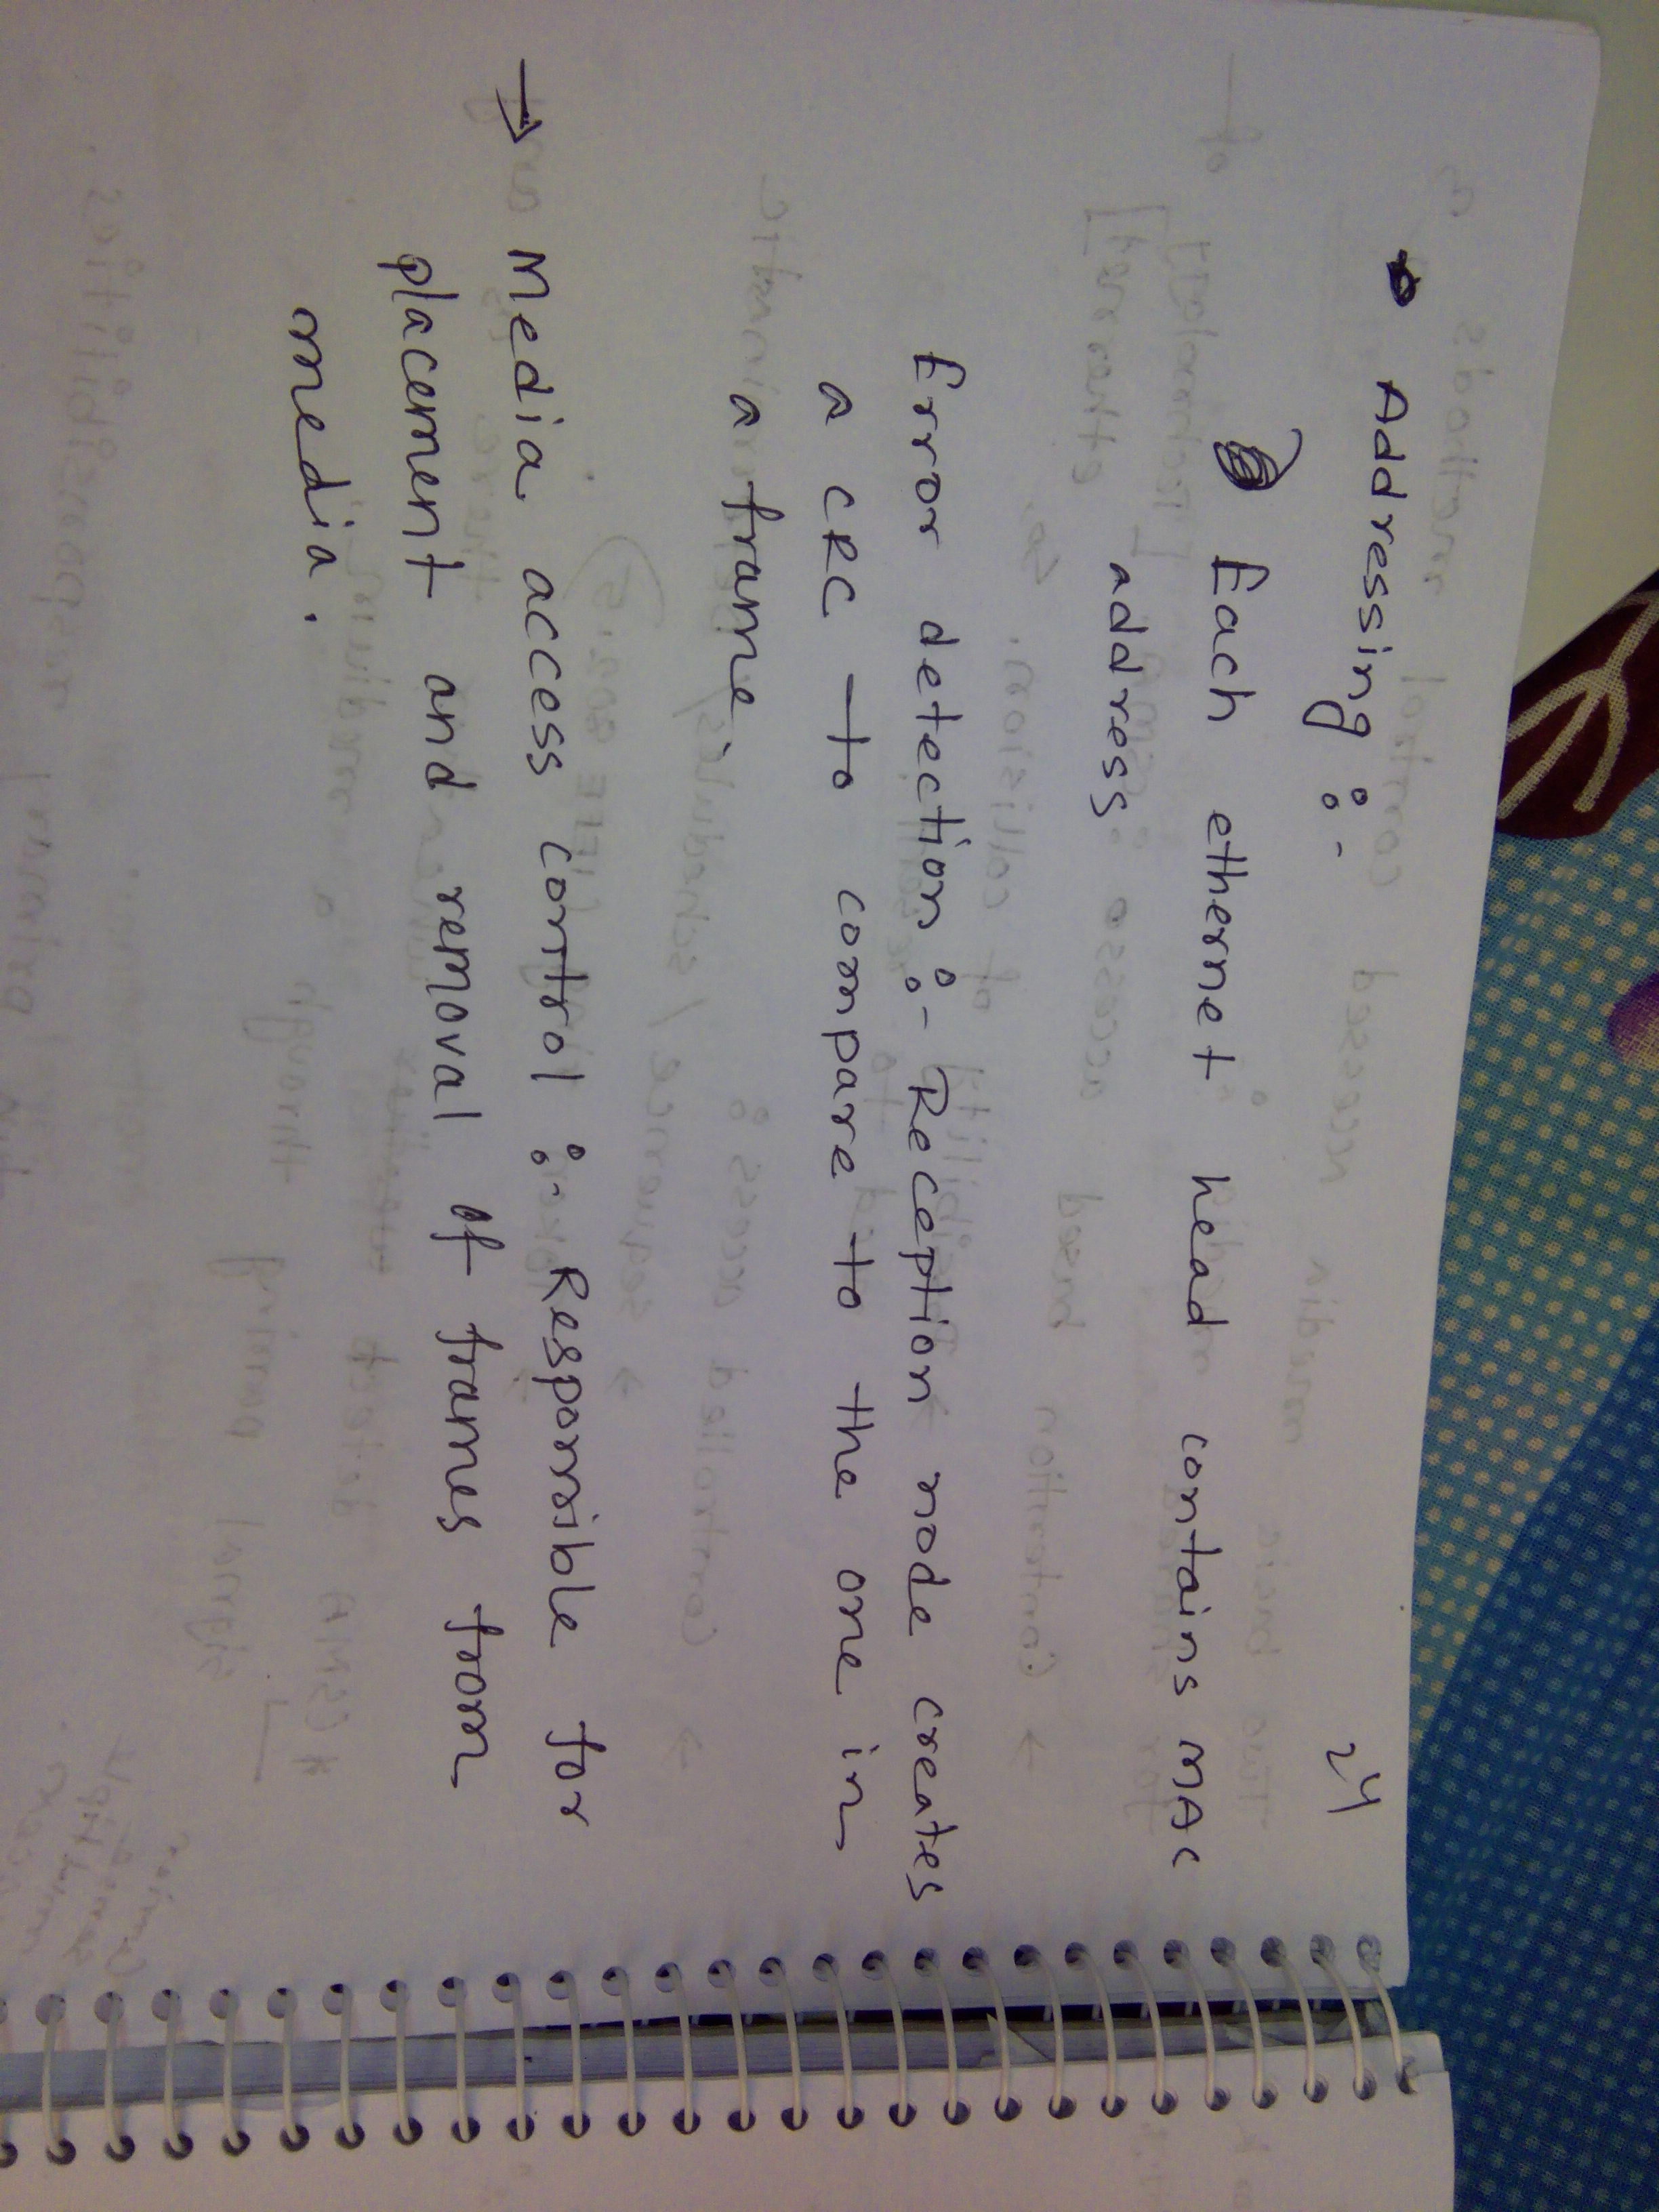 Addressing :-
24
Each ethernet head contains MAC
address
Error detection :- Reception node creates
a CRC to compare to the one in
a frame.
→ Media access control :- Responsible for
placement and removal of frames from
media.